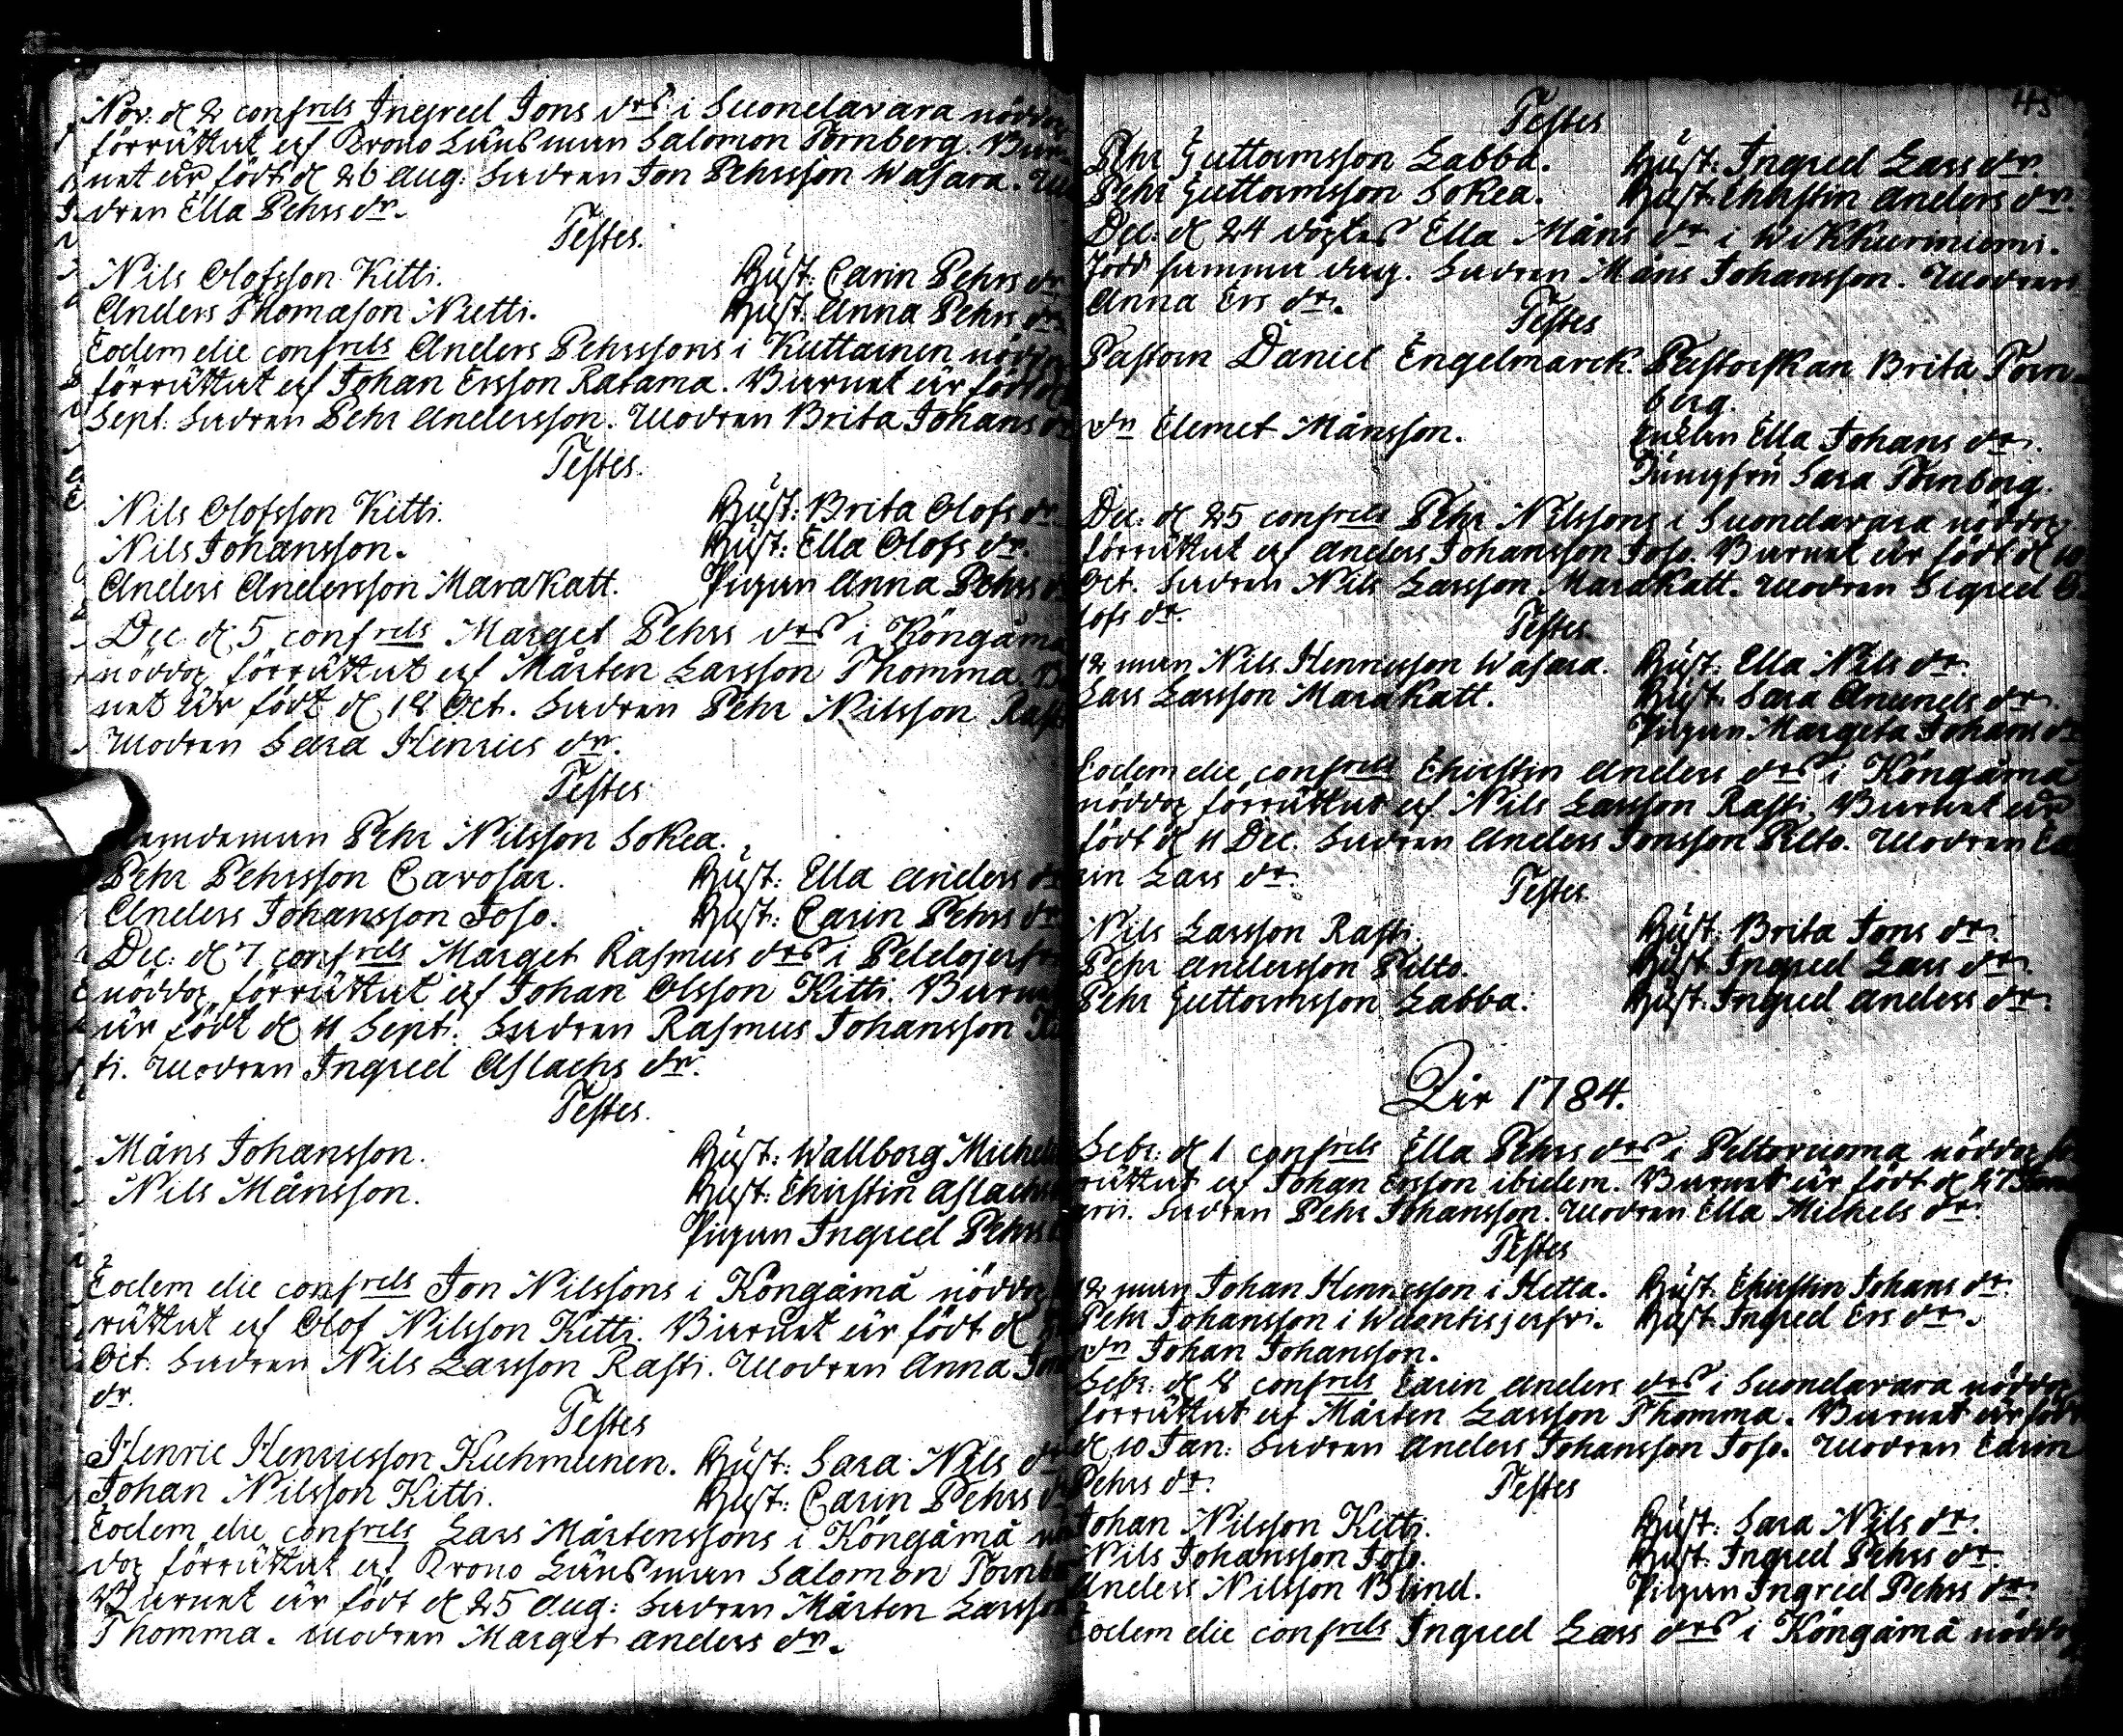 Nov: d 2 confrels Ingred Jons drs i Suondavara nöddop
förrättat af Krono Länsman Salomon Tornberg. Bar-
net är född d 26 Aug: Fadren Jon Pehrsson Wasara. Mo
dren Ella Pehrs dr.
Testes.
Nils Olofsson Kitti. Hust: Carin Pehrs dr
Anders Thomasson Nutti. Hust: Anna Pehrs dr
Eodem die confrels Anders Pehrssons i Kuttainen nöddop
förrättat af Johan Ersson Ratama. Barnet är född d
Sept: Fadren Pehr Andersson. Modren Brita Johans dr
Testes.
Nils Olofsson Kitti. Hust: Brita Olofs dr
Nils Johansson. Hust: Ella Olofs dr.
Anders Andersson Marakatt. Pigan Anna Pehrs dr
Dec d 5 confrels Marget Pehrs drs i Köngämä
nöddop förrättat af Mårten Larsson Thomma.
net är född d 18 Oct. Fadren Pehr Nilsson Rasti
Modren Sara Henrics dr.
Testes
Nämdeman Pehr Nilsson Sokea.
Pehr Pehrsson Cavosar. Hust: Ella Anders dr
Anders Johansson Joso. Hust: Carin Pehrs dr
Dec: d 7 confrels Marget Rasmus drs i Peldojerf
nöddop förrättat af Johan Olsson Kitti. Barnet
är född d 11 Sept: Fadren Rasmus Johansson Kit
ti. Modren Ingred Aslachs dr.
Testes.
Måns Johansson. Hust: Wallborg Michels
Nils Månsson. Hust: Christin Aslachs
Pigan Ingred Pehrs
Eodem die confrels Jon Nilssons i Köngämä nöddop
rättat af Olof Nilsson Kitti. Barnet är född d
Oct: Fadren Nils Larsson Rasti. Modren Anna Jons
dr.
Testes
Henric Henricsson Kuhmunen. Hust: Sara Nils dr
Johan Nilsson Kitti. Hust: Carin Pehrs dr
Eodem die confrels Lars Mårtenssons i Köngämä nöd
dop förrättat af Krono Länsman Salomon Tornberg
Barnet är född d 25 Aug: Fadren Mårten Larsson
Thomma. Modren Marget Anders dr.
45
Testes
Pehr Guttormsson Labba. Hust: Ingred Lars dr.
Pehr Guttormsson Sokea. Hust: Christin Anders dr.
Dec: d 24 döptes Ella Måns dr i Wikkurniemi.
Född samma dag. Fadren Måns Johansson. Modren
Anna Ers dr.
Testes
Pastorn Daniel Engelmarck. Pastorskan Brita Torn-
berg.
dn Clemet Månsson. Enkan Ella Johans dr.
Jungfru Sara Tornberg.
Dec: d 25 confrels Pehr Nilssons i Suondavara nöddop
förrättat af Anders Johansson Joso. Barnet är född d 10
Oct. Fadren Nils Larsson Marakatt. Modren Sigred O-
lofs dr.
Testes
12 man Nils Henricsson Wasara. Hust: Ella Nils dr.
Lars Larsson Marakatt. Hust: Sara Amunds dr.
Pigan Margeta Johans dr
Eodem die confrels Christin Anders drs i Köngämä
nöddop förrättat af Nils Larsson Rasti. Barnet är
född d 11 Dec. Fadren Anders Jonsson Pilto. Modren Ca-
rin Lars dr.
Testes
Nils Larsson Rasti. Hust: Brita Jons dr.
Pehr Andersson Pilto. Hust: Ingred Lars dr.
Pehr Guttormsson Labba. Hust: Ingred Anders dr.
Åhr 1784.
Febr: d 1 confrels Ella Pehrs drs i Peltovuoma nöddop för
rättat af Johan Ersson ibidem. Barnet är född d 27 Janu
arii. Fadren Pehr Johansson. Modren Ella Michels dr.
Testes
12 man Johan Henricsson i Hetta. Hust: Christin Johans dr.
Pehr Johansson i Wuontisjerfvi. Hust: Ingred Ers dr.
dn Johan Johansson.
Febr: d 8 confrels Carin Anders drs i Suondavara nöddop
förrättat af Mårten Larsson Thomma. Barnet är född
d 10 Jan: Fadren Anders Johansson Joso. Modren Carin
Pehrs dr.
Testes
Johan Nilsson Kitti. Hust: Sara Nils dr.
Nils Johansson Joso. Hust: Ingred Pehrs dr.
Anders Nilsson Blind. Pigan Ingred Pehrs dr.
Eodem die confrels Ingred Lars drs i Köngämä nöddop